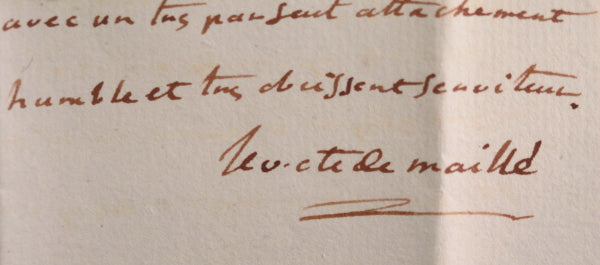 avec un tres parfait attachement
humble et tres obeissent serviteur.
le v.cte de maillé